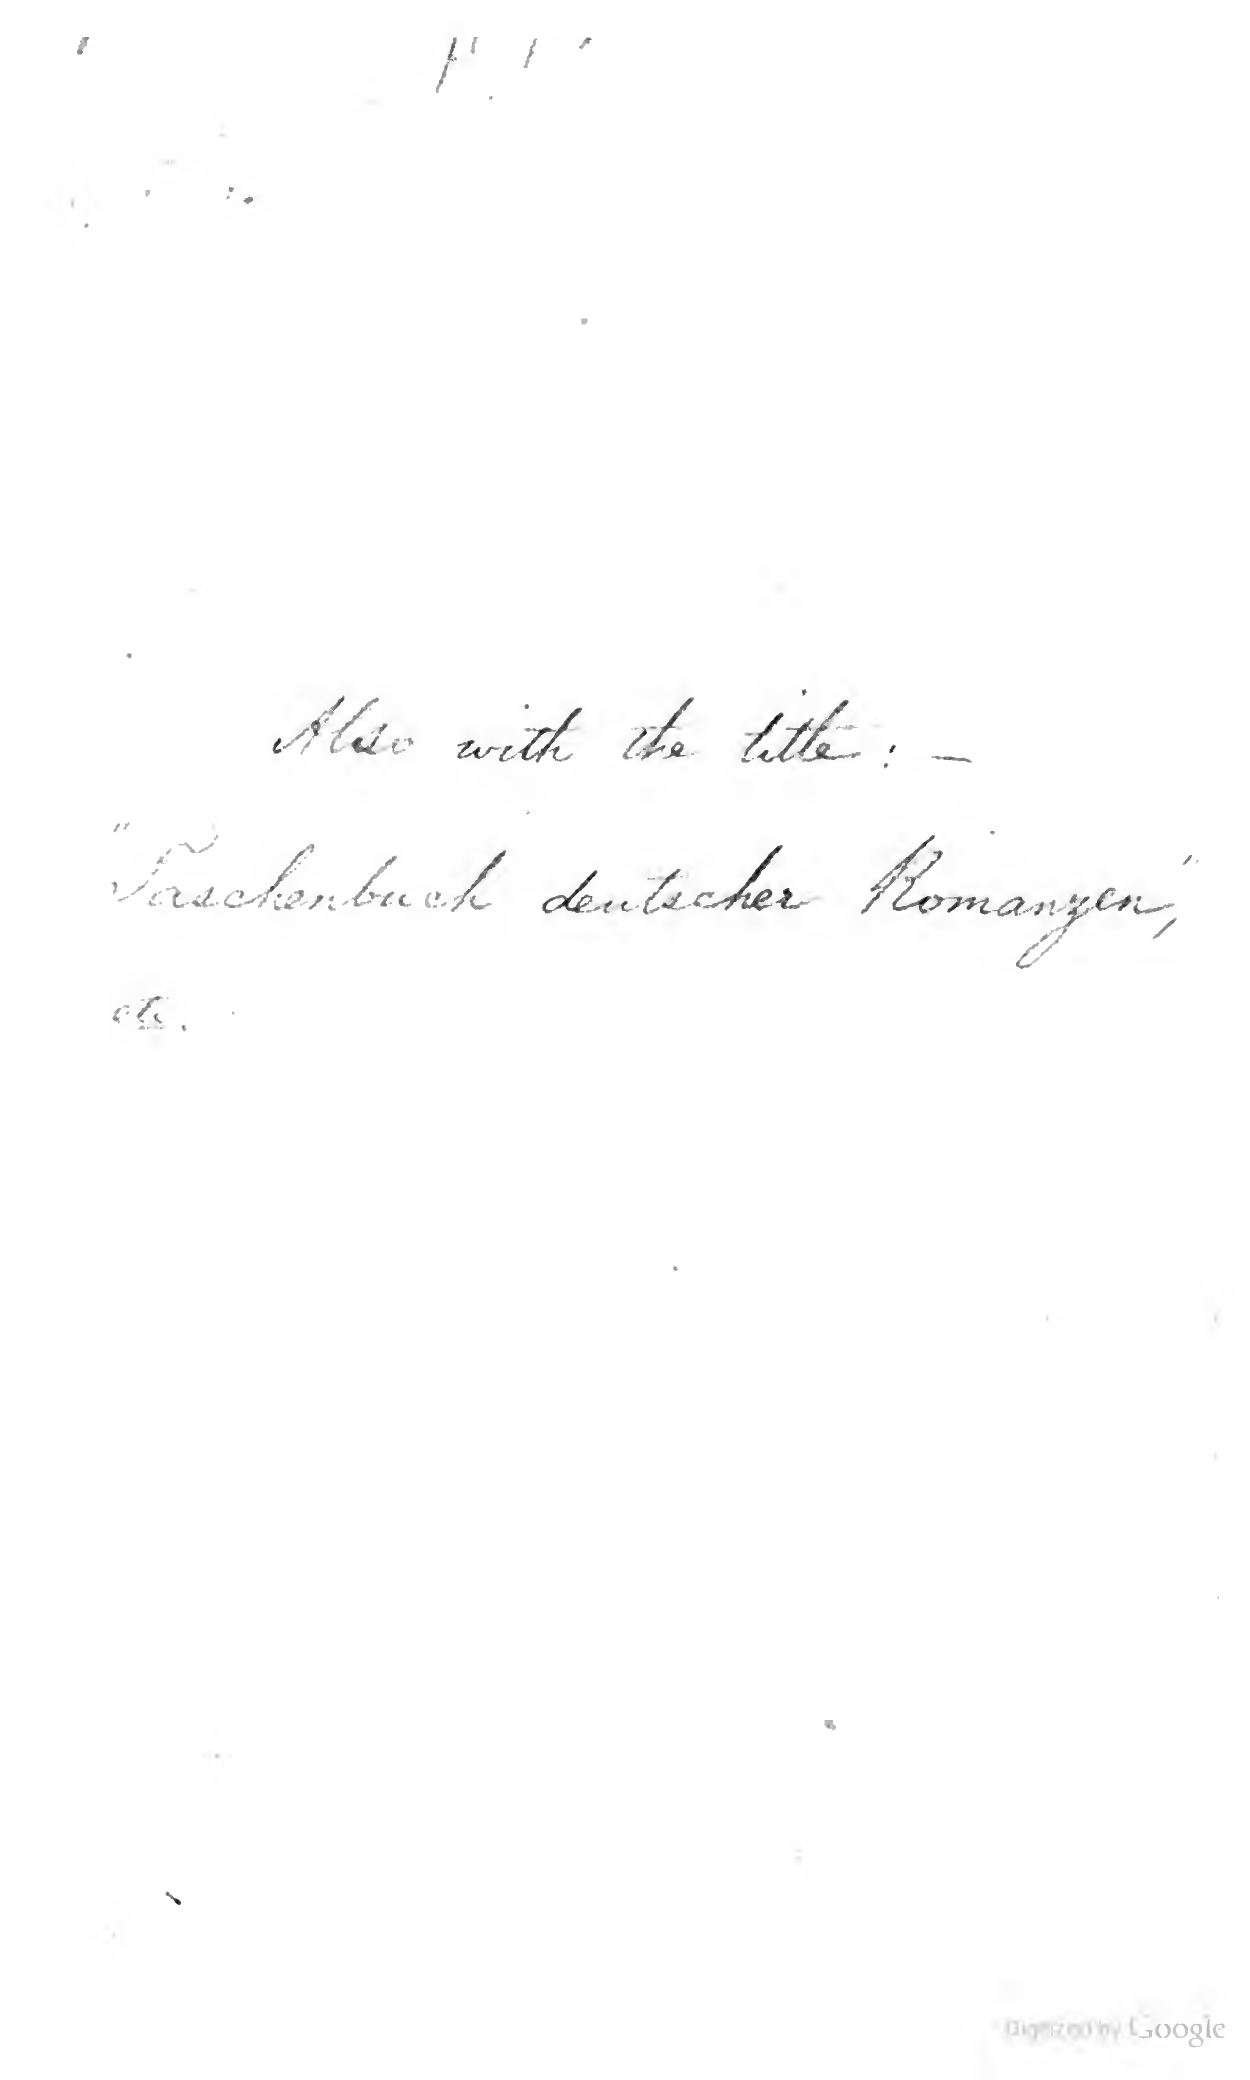 Also with the title: —
"Taschenbuch deutscher Romanzen,"
etc.
Digitized by Google